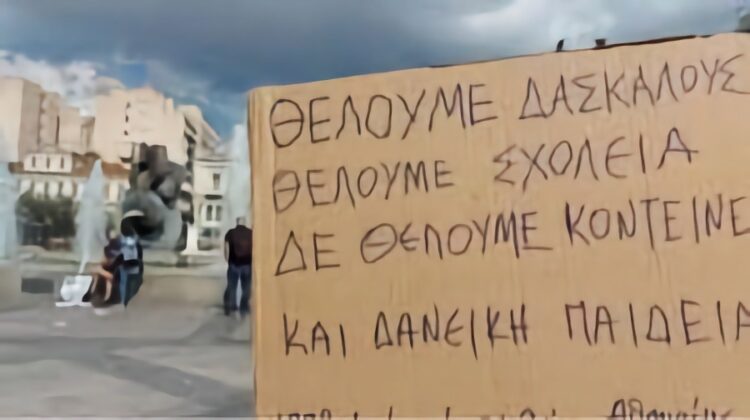 ΘΕΛΟΥΜΕ ΔΑΣΚΑΛΟΥΣ
ΘΕΛΟΥΜΕ ΣΧΟΛΕΙΑ
ΔΕ ΘΕΛΟΥΜΕ ΚΟΝΤΕΙΝΕ
ΚΑΙ ΔΑΝΕΙΚΗ ΠΑΙΔΕΙΑ